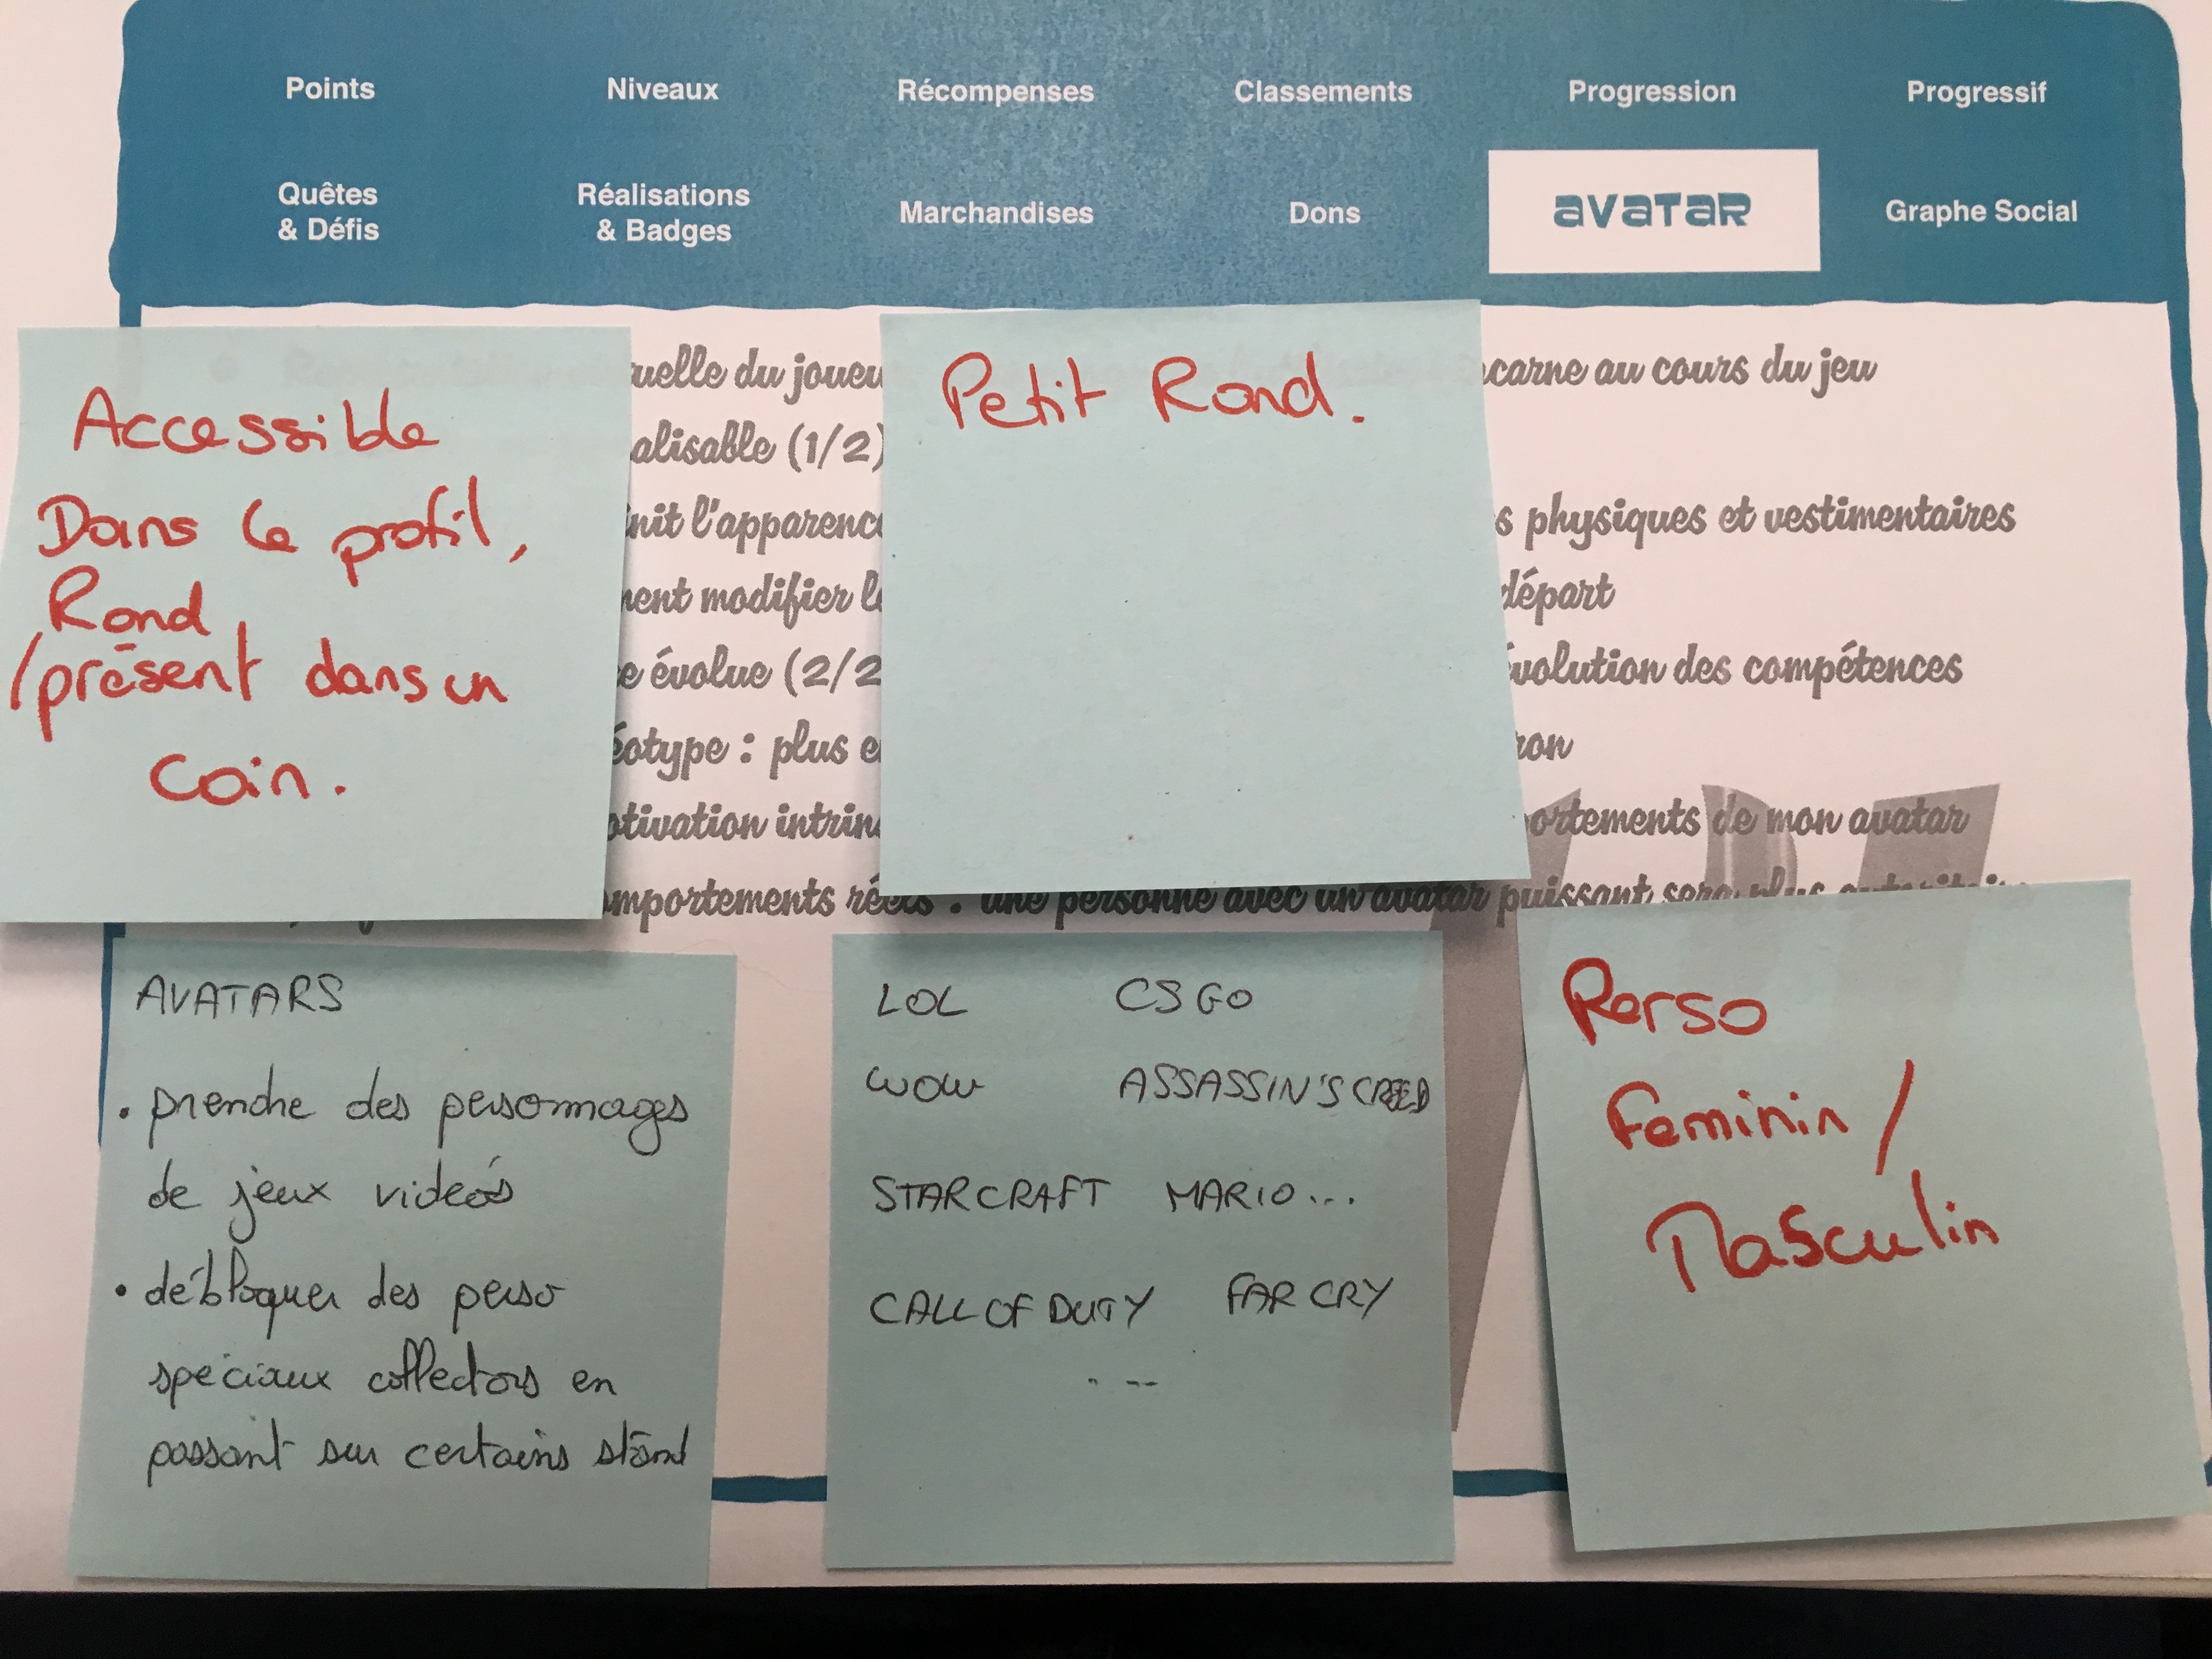 Points Niveaux Récompenses Classements Progression Progressif
Quêtes & Défis Réalisations & Badges Marchandises Dons AVATAR Graphe Social
Accessible
Dans le profil,
Rond
/présent dans un
coin.
Petit Rond.
uelle du joueu
carne au cours du jeu
alisable (1/2)
nit l'apparence
s physiques et vestimentaires
ent modifier le
départ
e évolue (2/2
volution des compétences
éotype : plus e
ron
otivation intrins
ortements de mon avatar
mportements réels : une personne avec un avatar puissant sera plus autoritaire
AVATARS
• prendre des personnages
de jeux vidéos
• débloquer des perso
spéciaux collectors en
passant sur certains stand
LOL CS GO
WOW ASSASSIN'S CREED
STARCRAFT MARIO...
CALL OF DUTY FAR CRY
Perso
Feminin /
Masculin